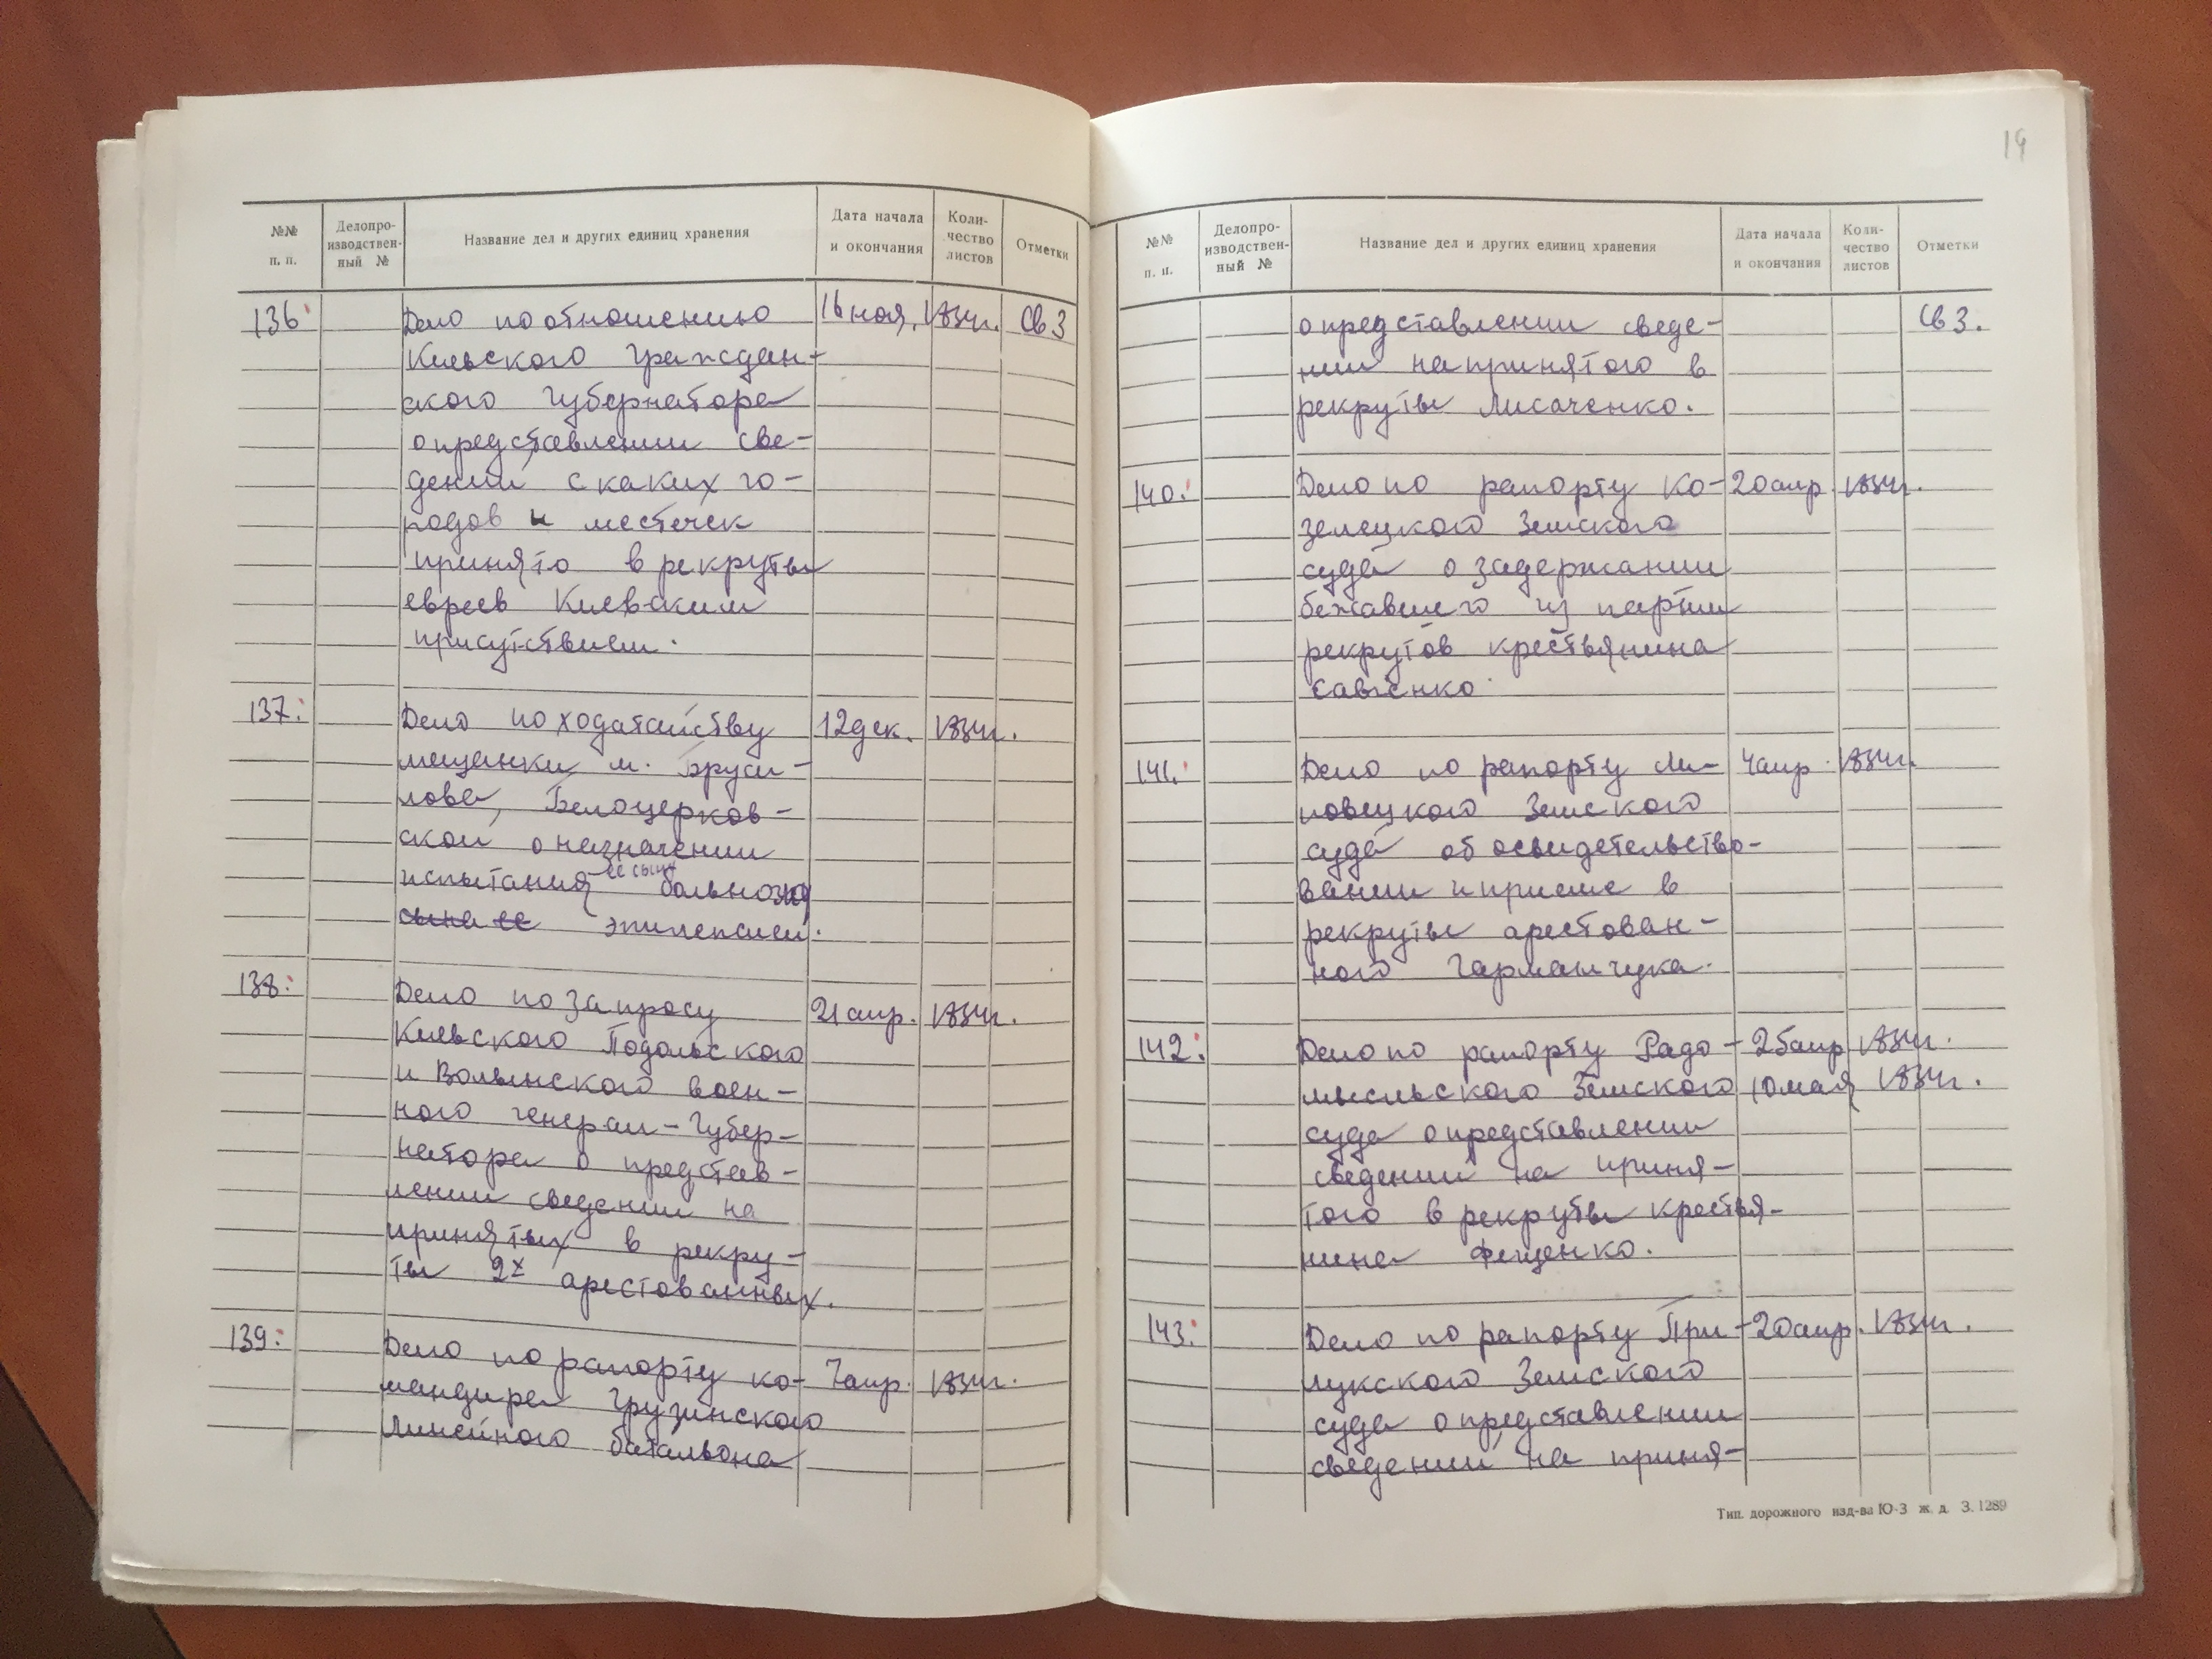 №№ п. п. Делопро-изводствен-ный № Название дел и других единиц хранения Дата начала и окончания Коли-чество листов Отметки
136 Дело по отношению 16 ноя. 1834г. Св 3
Киевского Граждан-
ского Губернатора
о представлении све-
дений с каких го-
родов и местечек
принято в рекруты
евреев Киевским
присутствием.
137. Дело по ходатайству 12 дек. 1834г.
мещанки м. Бруси-
лова, Белоцерков-
ской о назначении
испытания ее сына больного
сына ее эпилепсией.
138. Дело по запросу 21 апр. 1834г.
Киевского Подольского
и Волынского воен-
ного генерал-Губер-
натора о представ-
лении сведений на
принятых в рекру-
ты 2х арестованных.
139. Дело по рапорту ко- 7 апр. 1834г.
мандира Грузинского
Линейного батальона
19
№№ п. п. Делопро-изводствен-ный № Название дел и других единиц хранения Дата начала и окончания Коли-чество листов Отметки
о представлении сведе- Св 3.
нии на принятого в
рекруты Лисаченко.
140. Дело по рапорту Ко- 20 апр. 1834г.
зелецкого Земского
суда о задержании
бежавшего из партии
рекрутов крестьянина
Савченко.
141. Дело по рапорту Ли- 4 апр. 1834г.
повецкого Земского
суда об освидетельство-
вании и приеме в
рекруты арестован-
ного Гарманчука.
142. Дело по рапорту Радо- 25 апр 1834г.
мысльского Земского 10 мая 1834г.
суда о представлении
сведений на приня-
того в рекруты крестья-
нина Фещенко.
143. Дело по рапорту При- 20 апр. 1834г.
лукского Земского
суда о представлении
сведений на приня-
Тип. дорожного изд-ва Ю-З ж. д. З. 1289